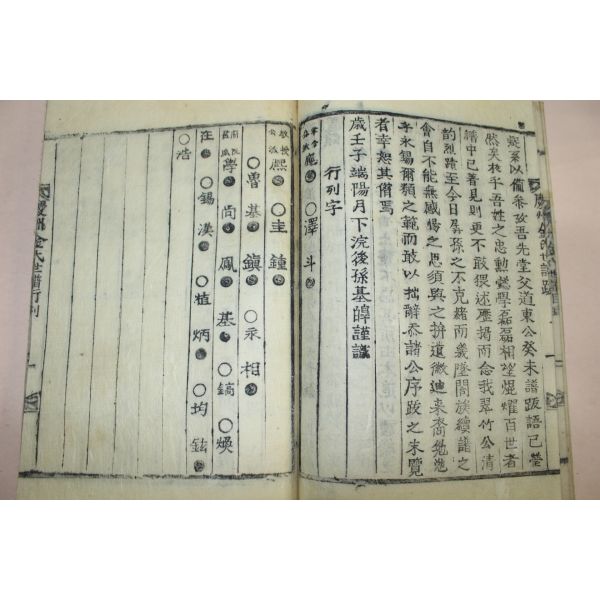 慶州金氏世譜跋
疑系以備叅攷吾先堂父道東公癸未譜跋語已瑩
然矣於乎吾姓之忠勳懿學磊磊相望焜耀百世者
譜中已著見則更不敢猥述歷揭而念我翠竹公清
韵烈蹟至今日孱孫之不克紹而義墜閤族續譜之
會自不能無感愴之思須與之拚道微迪来裔勉勉
永錫爾類之範而敢以拙辭忝諸公序跋之末覽
者幸恕其僭焉
歲壬子端陽月下浣後孫基暐謹識
行列字
○澤 斗
教授公派 熙 ○圭 鍾
○魯 基 ○鎭 ○承 相
學 尚 鳳 基 ○鎬 ○煥
在 ○錫 漢 ○植 炳 ○均 鉉
○浩
慶州金氏世譜行列